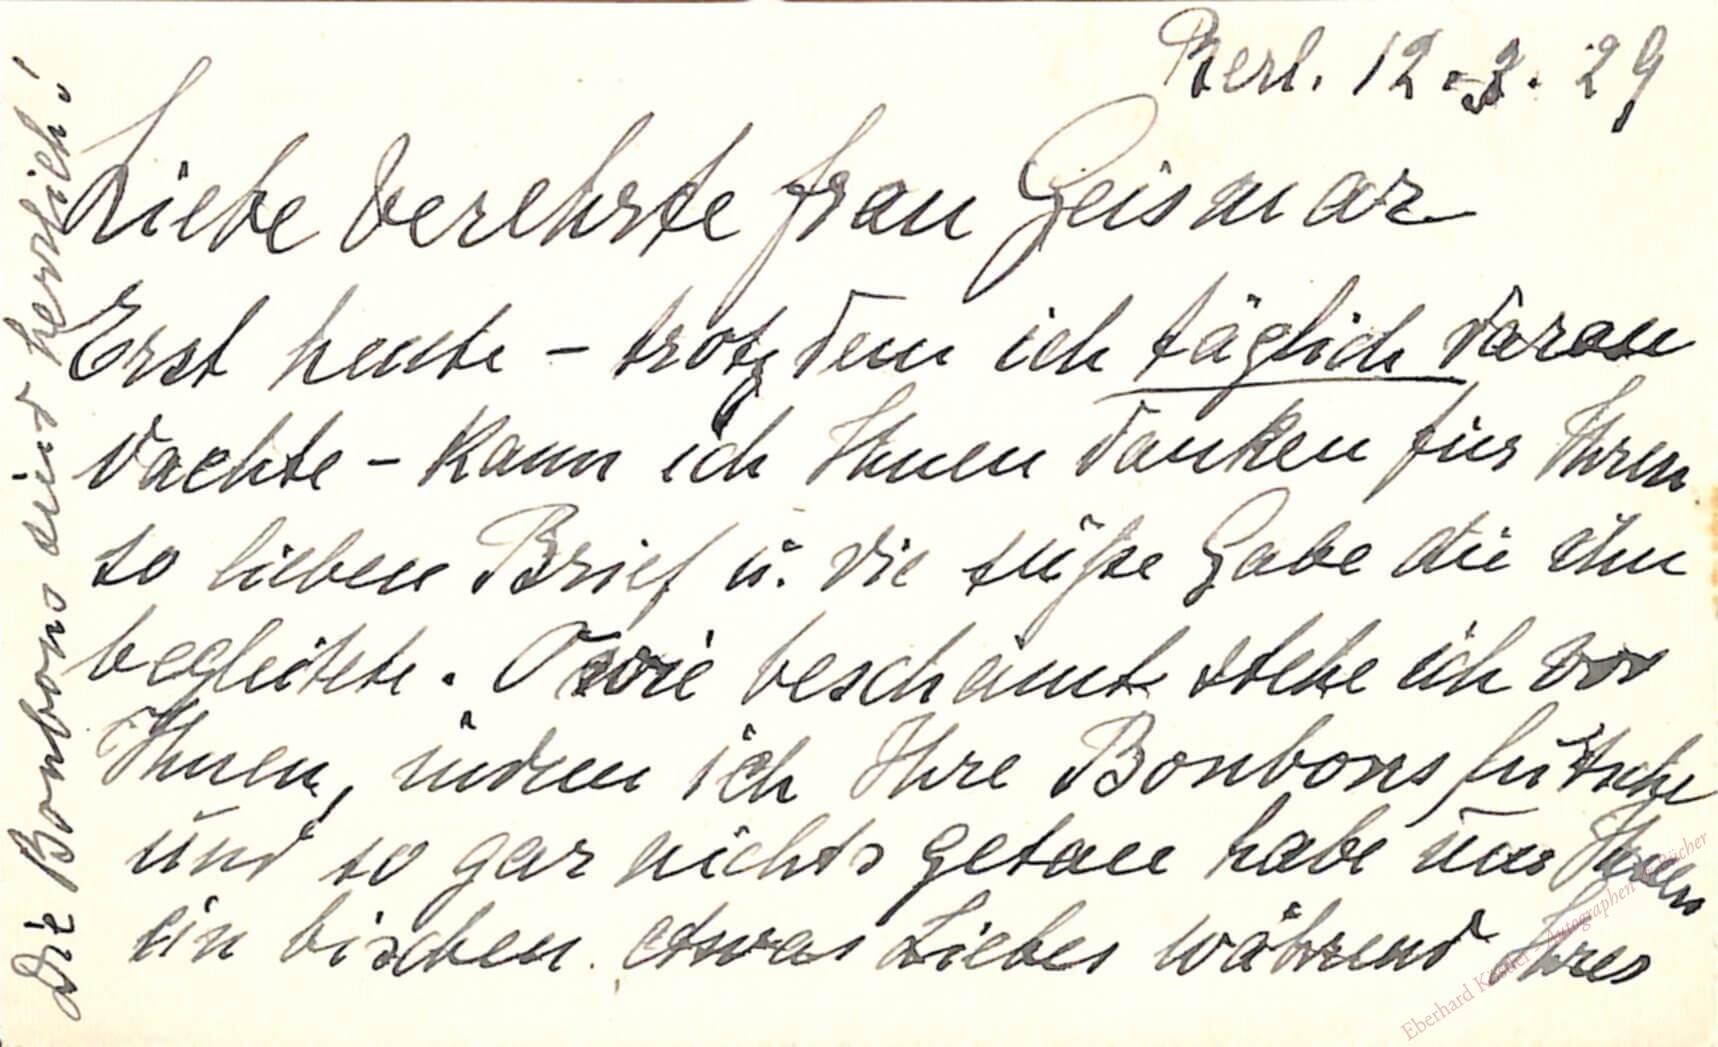 Berl. 12.3.29
Liebe verehrte Frau Geismar
Erst heute – trotzdem ich täglich daran
dachte – kann ich Ihnen danken für Ihren
so lieben Brief u. die süße Gabe die ihn
begleitete. O wie beschämt stehe ich vor
Ihnen, indem ich Ihre Bonbons futsche
und so gar nichts getan habe um Ihnen
ein bischen etwas Liebes während Ihres
Die Bonbons sind herrlich!
Eberhard Köstler Autographen Bücher